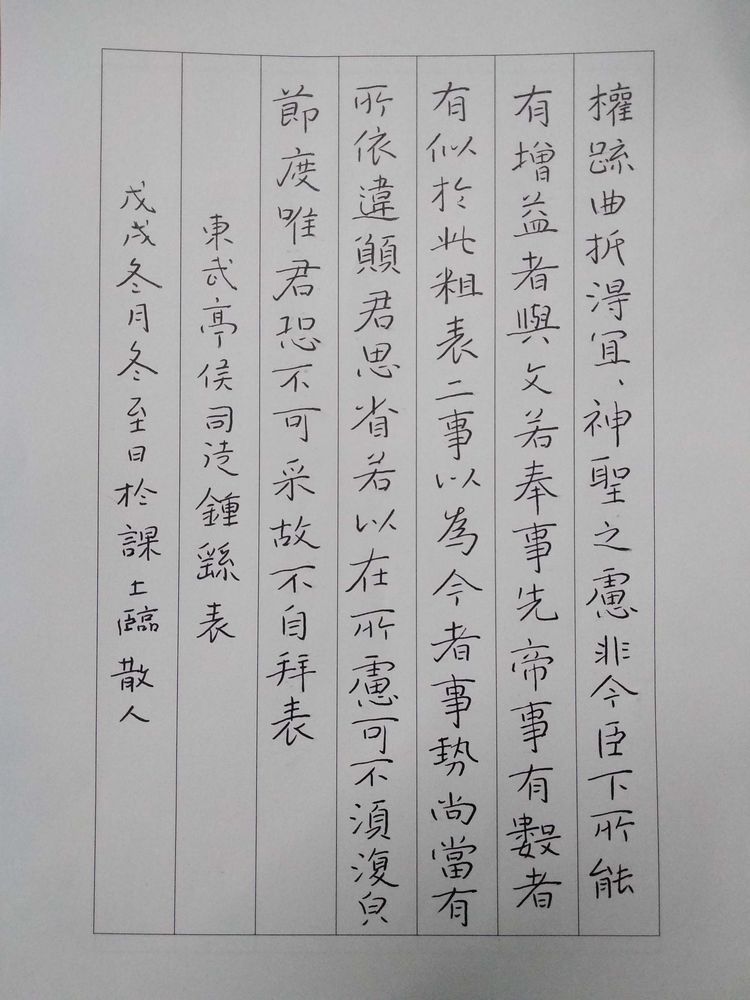 權疏曲折得宜、神聖之慮非今臣下所能
有增益者與文若奉事先帝事有數者
有似於此粗表二事以為今者事勢尚當有
所依違願君思省若以在所慮可不須復皃
節度唯君恐不可采故不自拜表
東武亭侯司徒鍾繇表
戊戌冬月冬至日於課上臨散人